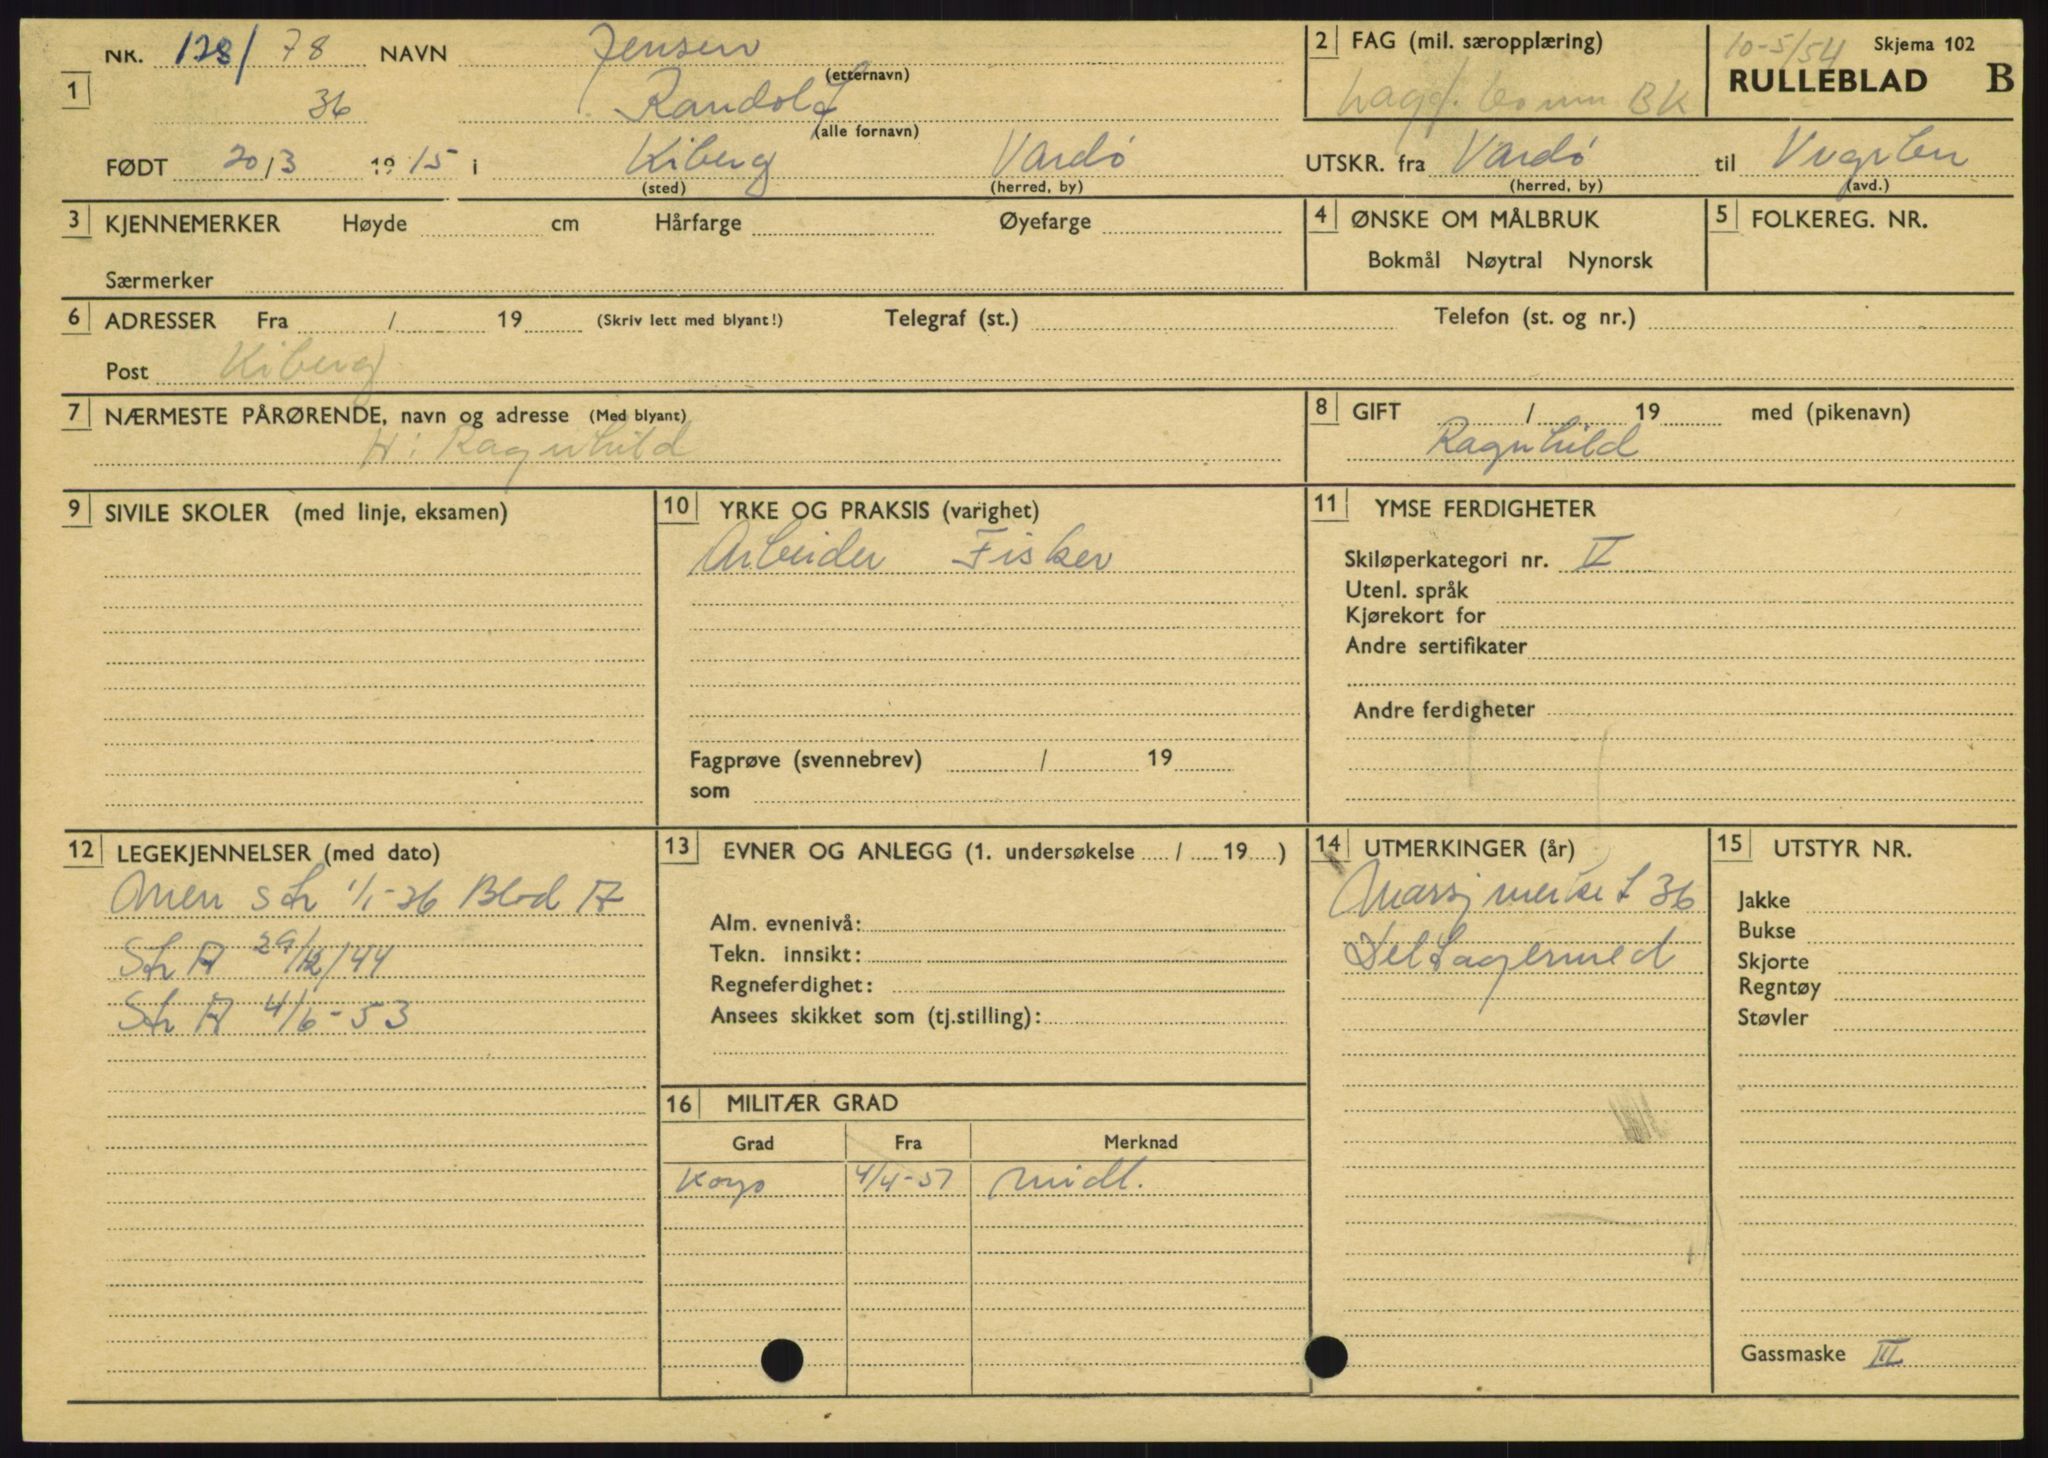 NR. 128/78 NAVN Jensen
(etternavn)
1 36 Randolf
(alle fornavn)
FØDT 20/3 1915 i Kiberg Vardø
(sted) (herred, by)
2 FAG (mil. særopplæring)
Lagf. BK
10-5/54 Skjema 102
RULLEBLAD B
UTSKR. fra Vardø til
(herred, by) (avd.)
3 KJENNEMERKER Høyde cm Hårfarge Øyefarge
Særmerker
4 ØNSKE OM MÅLBRUK
Bokmål Nøytral Nynorsk
5 FOLKEREG. NR.
6 ADRESSER Fra / 19 (Skriv lett med blyant!) Telegraf (st.) Telefon (st. og nr.)
Post Kiberg
7 NÆRMESTE PÅRØRENDE, navn og adresse (Med blyant)
H: Ragnhild
8 GIFT / 19 med (pikenavn)
Ragnhild
9 SIVILE SKOLER (med linje, eksamen)
10 YRKE OG PRAKSIS (varighet)
Arbeider Fisker
Fagprøve (svennebrev) / 19
som
11 YMSE FERDIGHETER
Skiløperkategori nr. V
Utenl. språk
Kjørekort for
Andre sertifikater
Andre ferdigheter
12 LEGEKJENNELSER (med dato)
1/1-36 Blod A
St A 29/12/44
St A 4/6-53
13 EVNER OG ANLEGG (1. undersøkelse / 19 )
Alm. evnenivå:
Tekn. innsikt:
Regneferdighet:
Ansees skikket som (tj.stilling):
14 UTMERKINGER (år)
Marsjmerket 36
Deltagermed
15 UTSTYR NR.
Jakke
Bukse
Skjorte
Regntøy
Støvler
Gassmaske III
16 MILITÆR GRAD
Grad Fra Merknad
Korp 4/4-51 midl.